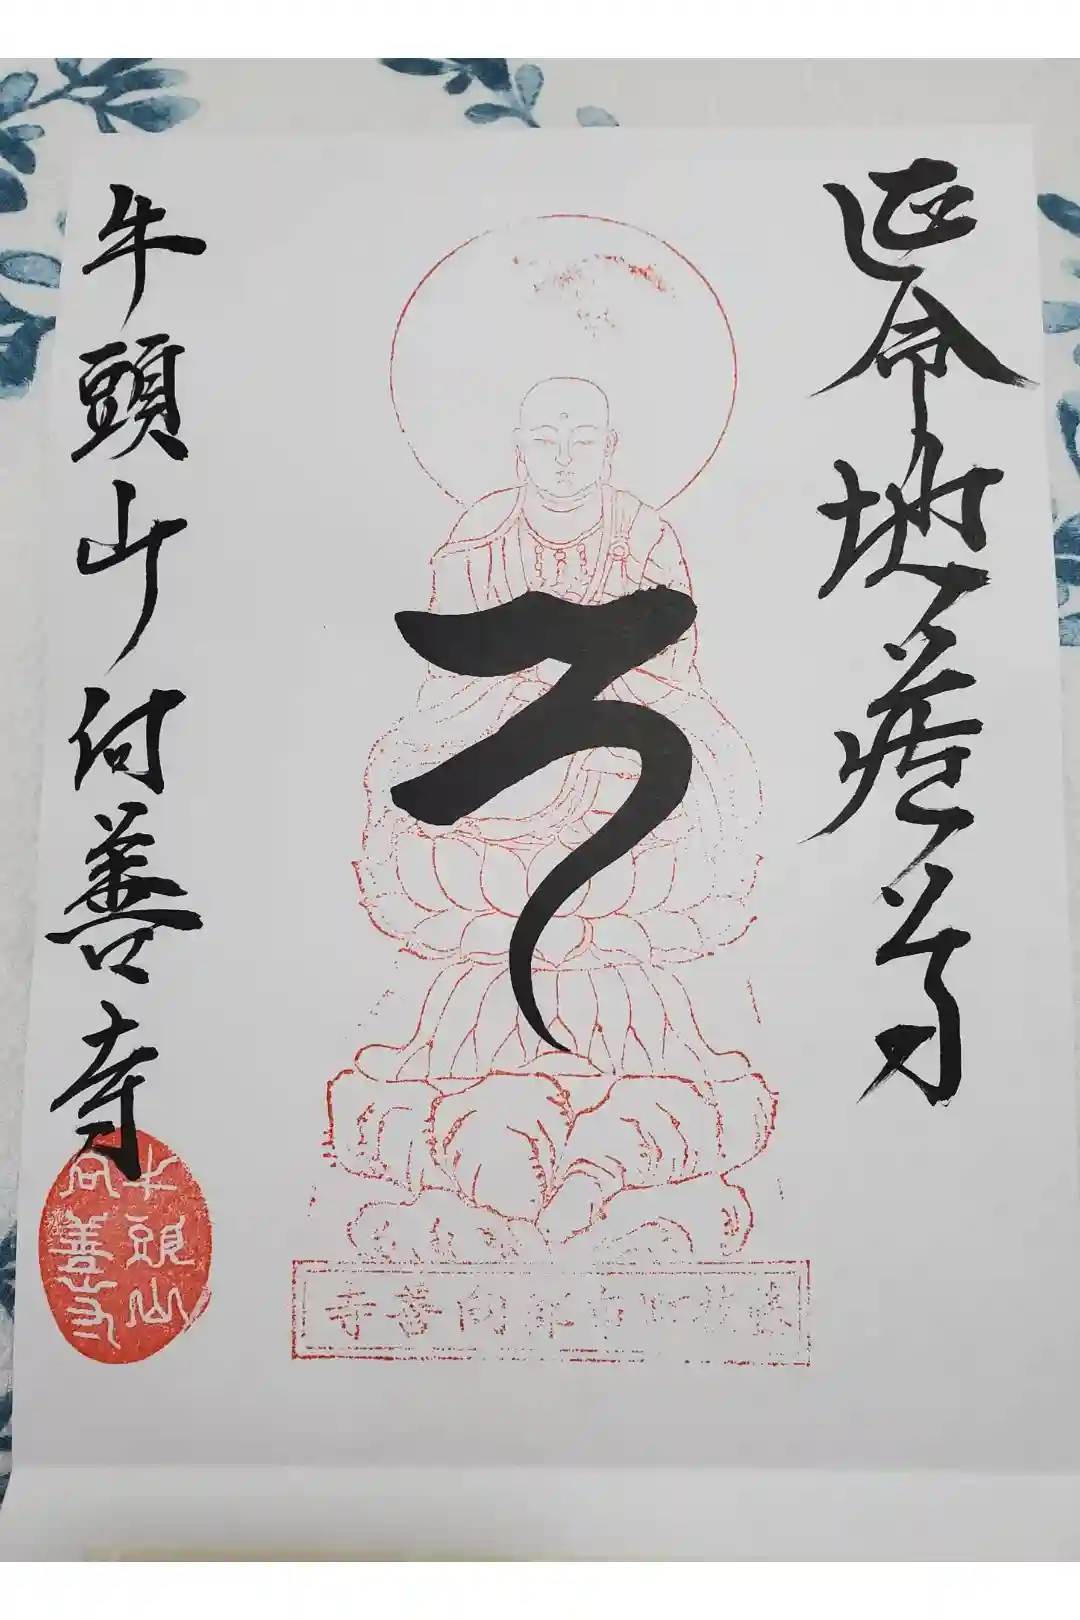 延命地蔵尊
𑖮
牛頭山向善寺
牛頭山
向善寺
向善寺